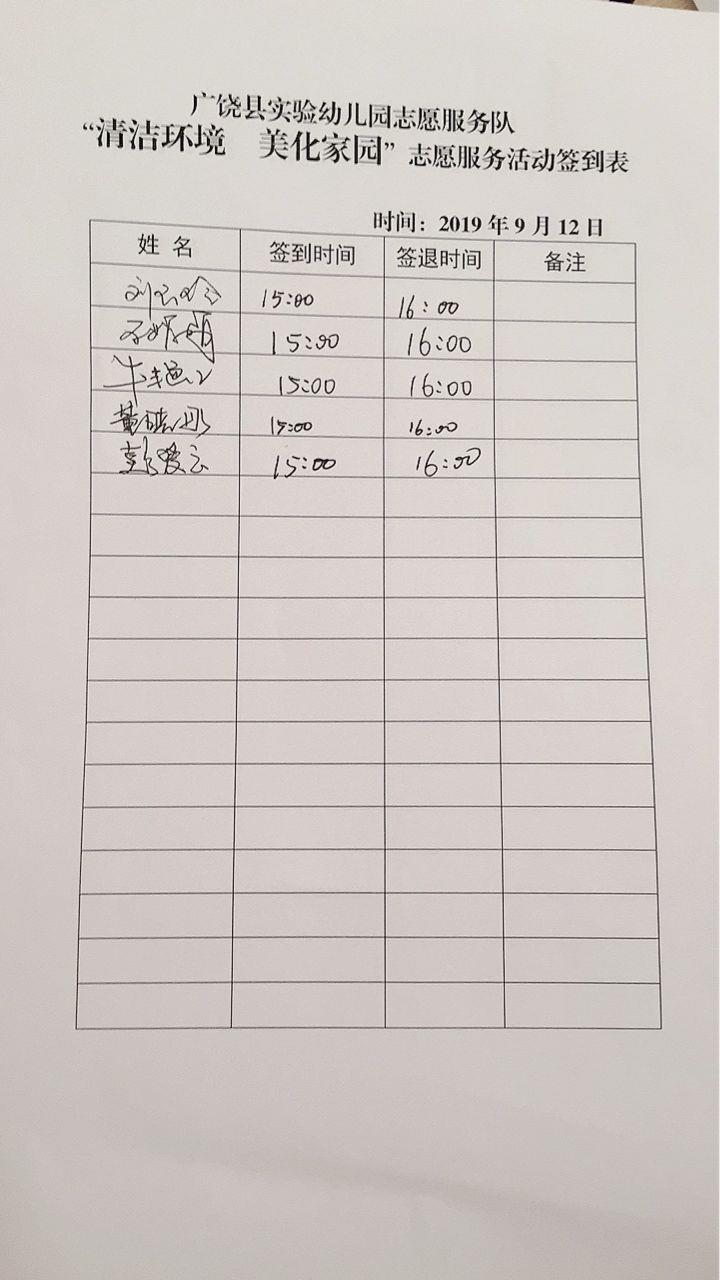 广饶县实验幼儿园志愿服务队
“清洁环境 美化家园”志愿服务活动签到表
时间：2019年9月12日
姓名 签到时间 签退时间 备注
15:00 16:00
15:00 16:00
15:00 16:00
15:00 16:00
彭爱云 15:00 16:00